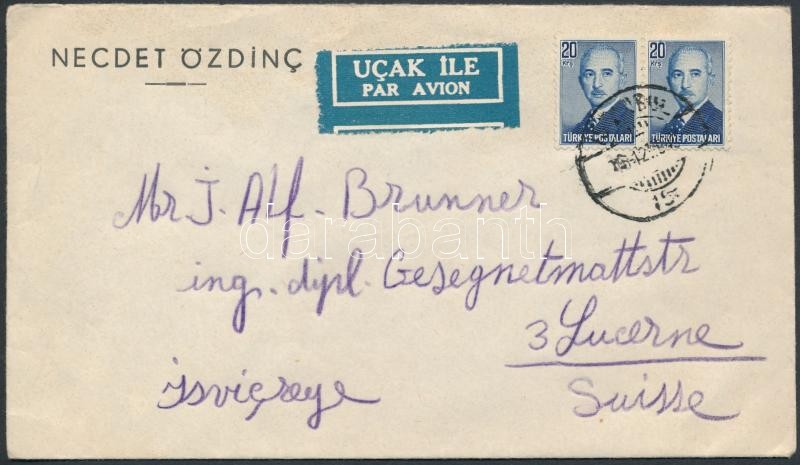 NECDET ÖZDİNÇ
UÇAK İLE
PAR AVION
20 Krş
TÜRKİYE POSTALARI
20 Krş
TÜRKİYE POSTALARI
Mr J. Alf. Brunner
ing. dipl. Gesegnetmattstr
3 Lucerne
İsviçreye
Suisse
darabanth